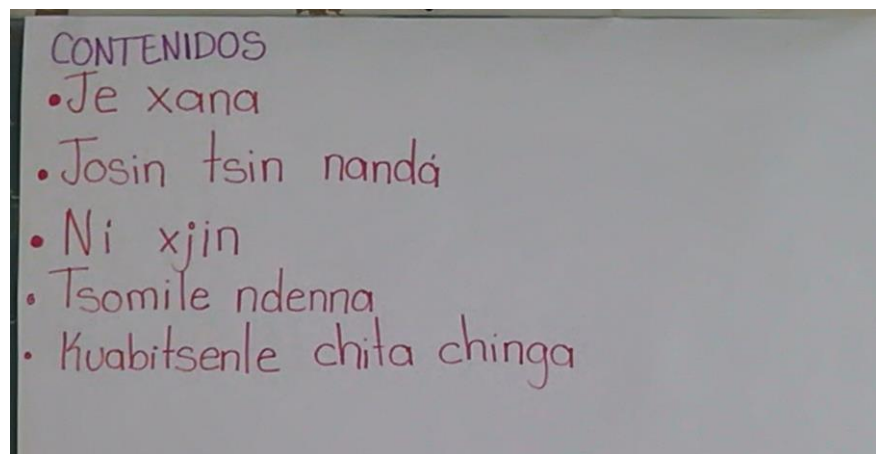 CONTENIDOS
• Je xana
• Josin tsin nandá
• Ni xjin
• Tsomile ndenna
• Kuabitsenle chita chinga